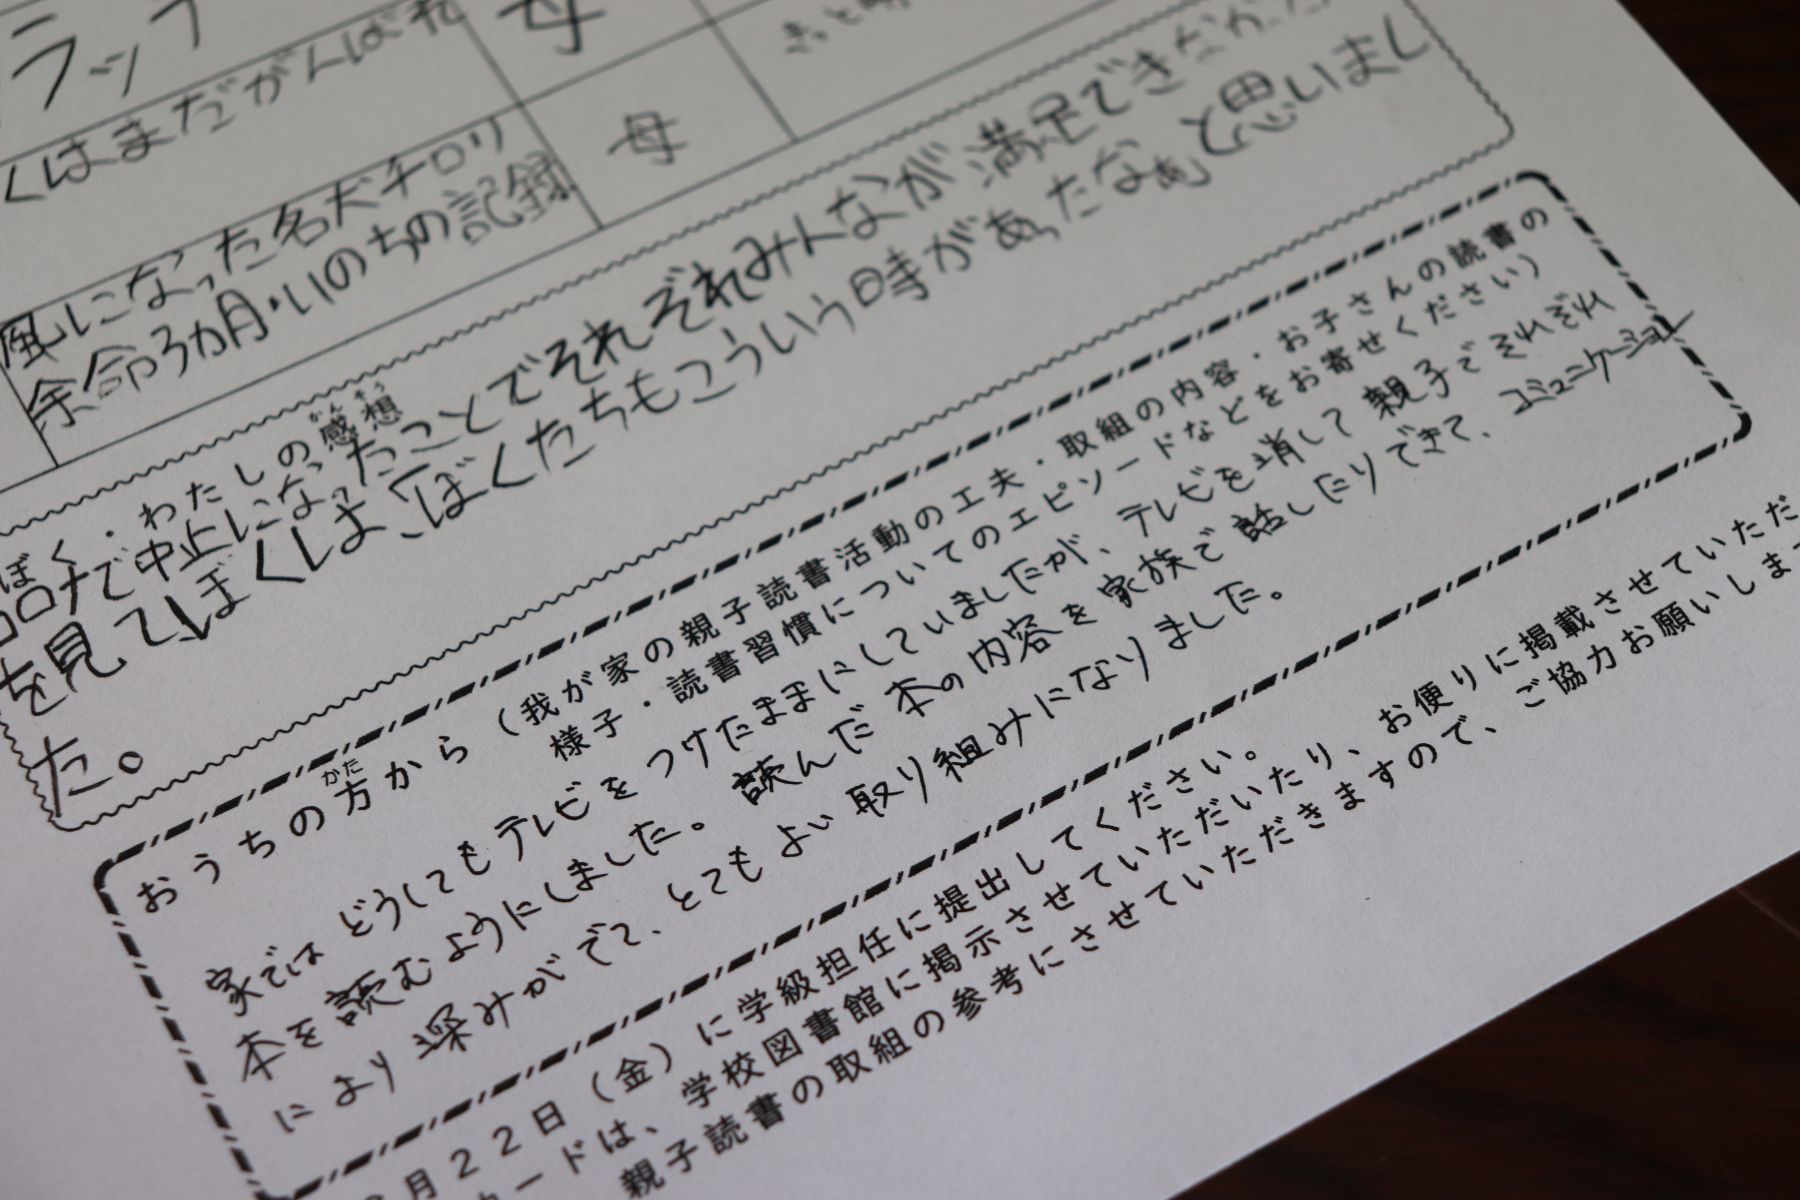 ラップ
母
くはまだがんばれ
風になった名犬チロリ
余命3か月・いのちの記録
母
ぼく・わたしの感想
かんそう
コロナで中止になったことでそれぞれみんなが満足できなかった
を見てぼくは、「ぼくたちもこういう時があったなぁと思いまし
た。
おうちの方から（我が家の親子読書活動の工夫・取組の内容・お子さんの読書の
かた
様子・読書習慣についてのエピソードなどをお寄せください）
家ではどうしてもテレビをつけたままにしていましたが、テレビを消して親子でそれぞれ
本を読むようにしました。読んだ本の内容を家族で話したりできて、コミュニケーション
により深みがでて、とてもよい取り組みになりました。
月２２日（金）に学級担任に提出してください。
ードは、学校図書館に掲示させていただいたり、お便りに掲載させていただ
親子読書の取組の参考にさせていただきますので、ご協力お願いします